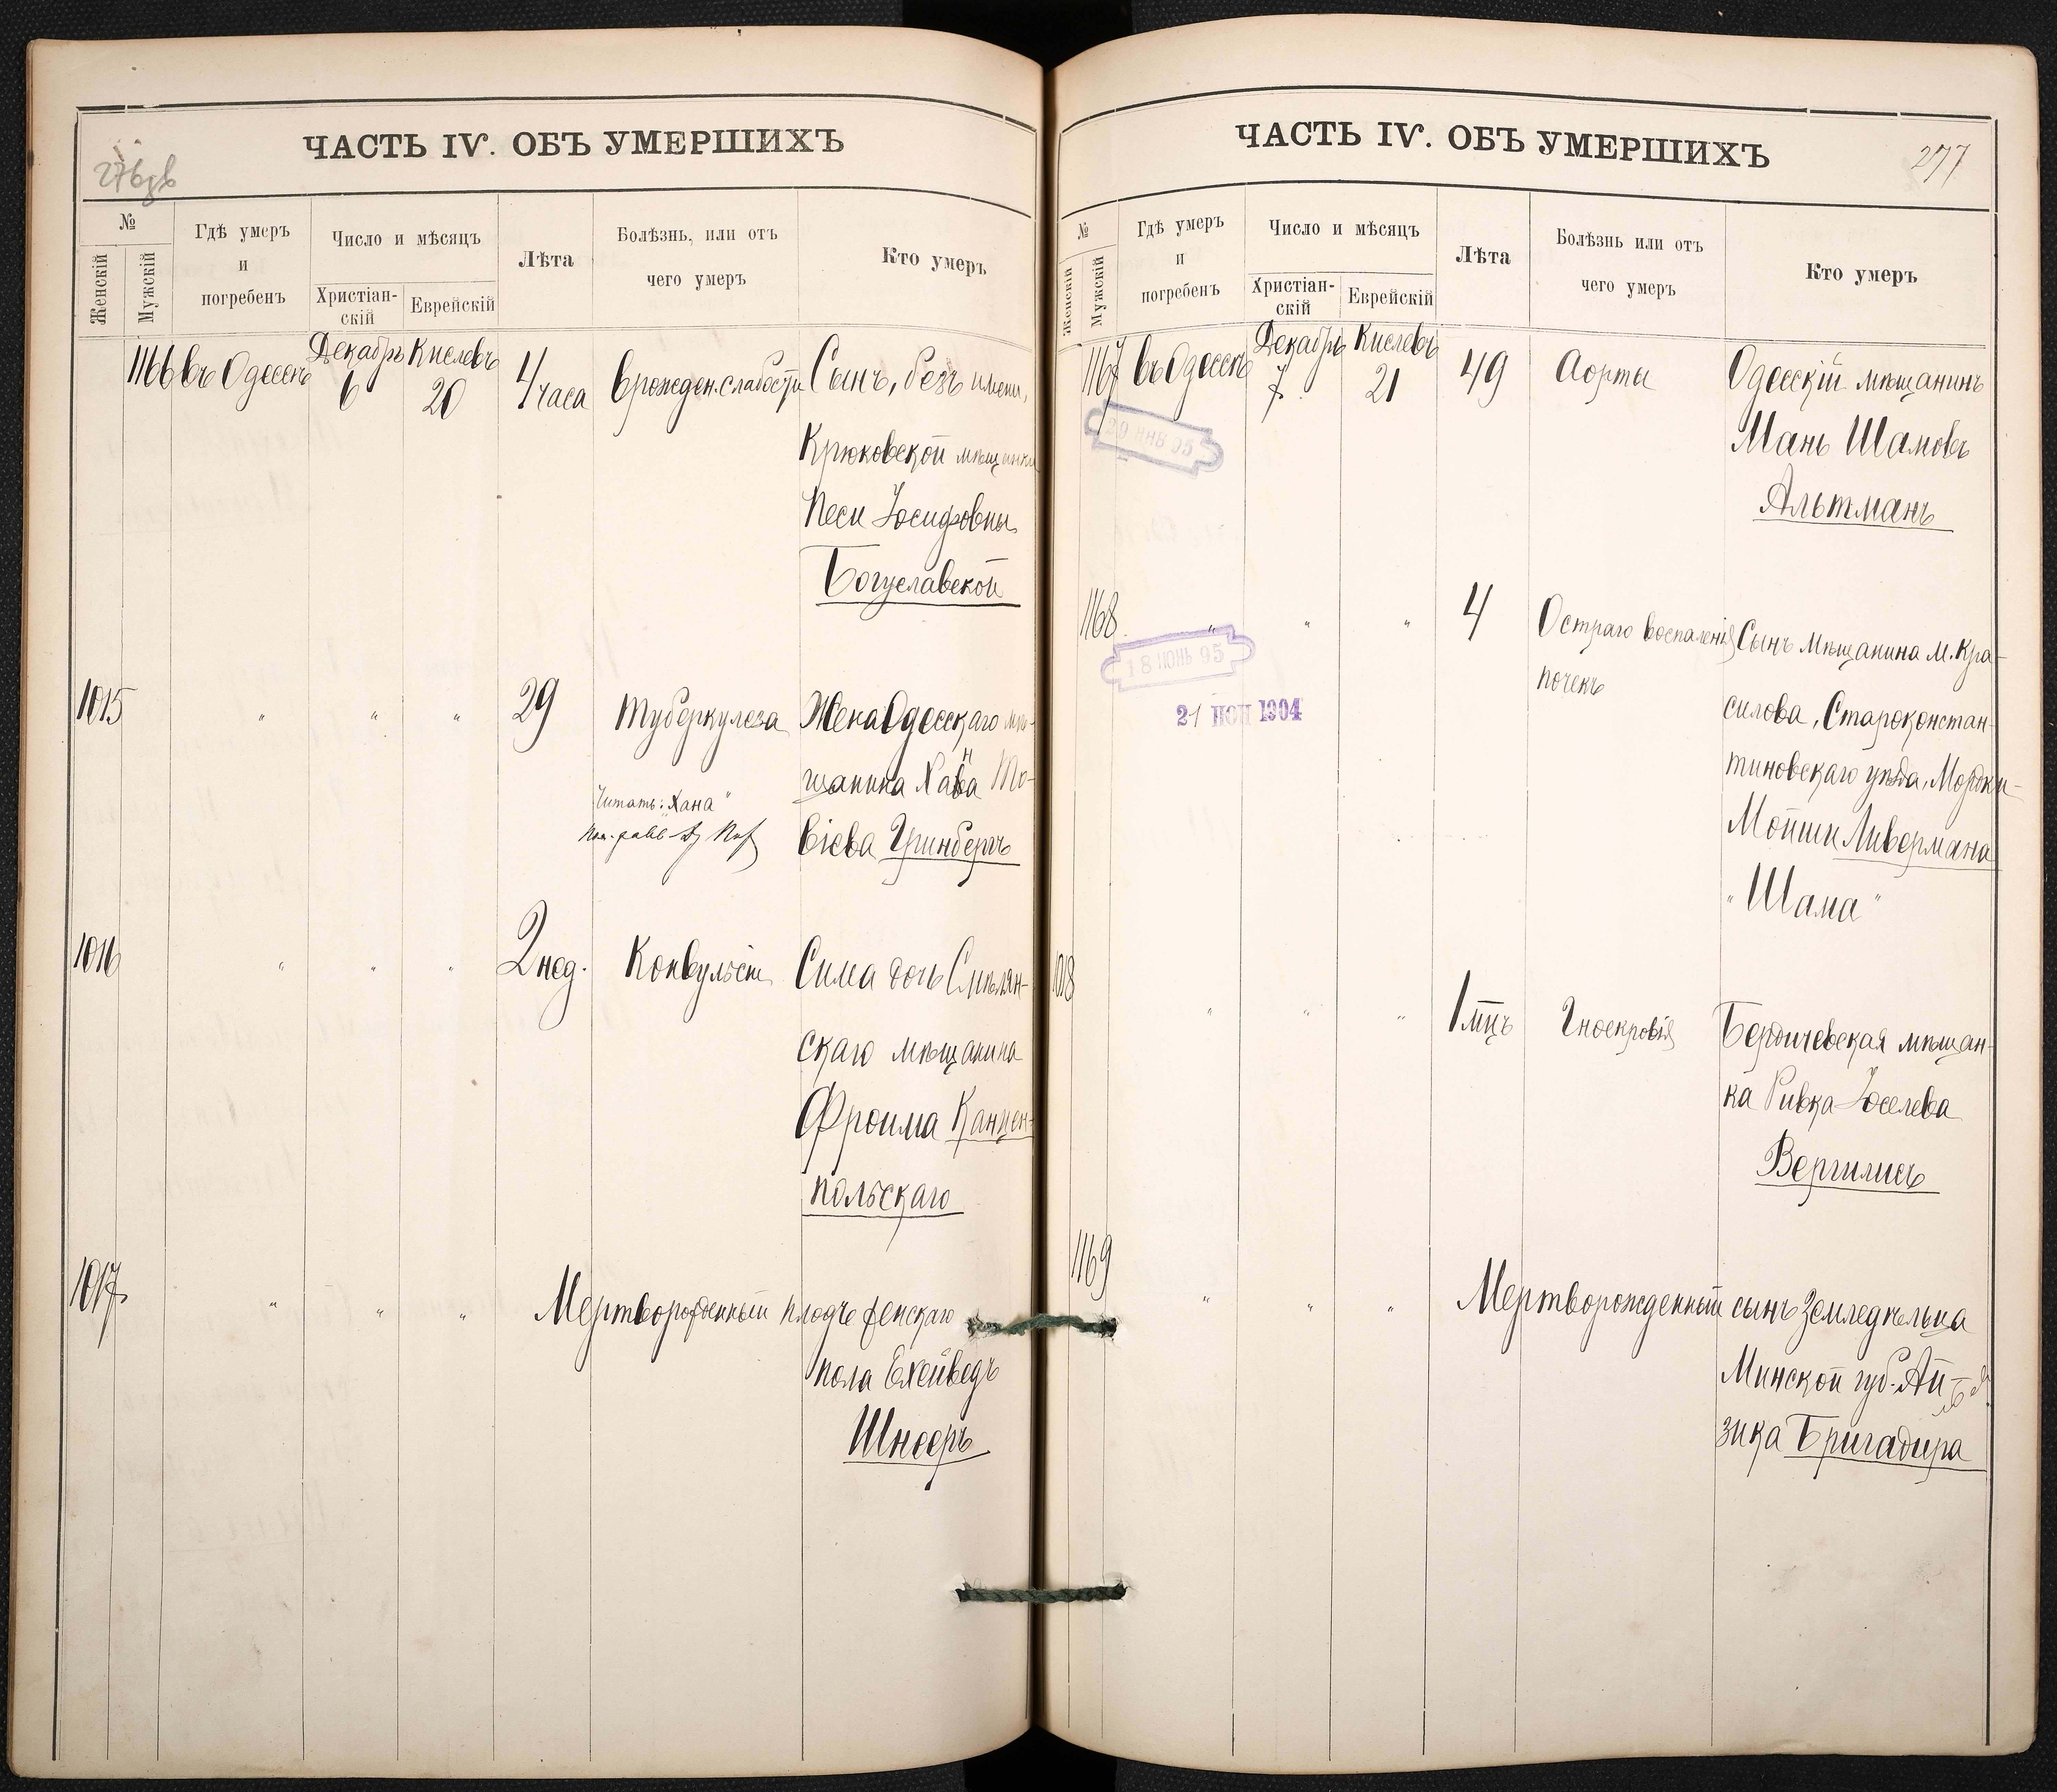 276зв
ЧАСТЬ IV. ОБЪ УМЕРШИХЪ
№
Женскій
Мужскій
Гдѣ умеръ
и
погребенъ
Число и мѣсяцъ
Христіан-
скій
Еврейскій
Лѣта
Болѣзнь, или отъ
чего умеръ
Кто умеръ
1166 въ Одессѣ Декабрь 6 Кислевъ 20 4 часа Врожден. слабости Сынъ, безъ имени,
Крюковской мѣщанки
Песи Іосифовны
Богуславской
1015 " " " 29 Туберкулеза Жена Одесскаго мѣ-
щанина Хавна То-
Читать: "Хана"
віева Гринбергъ
1016 " " " 2 нед. Конвульсіи Сима дочь Смѣлян-
скаго мѣщанина
Фроима Канцен-
польскаго
1017 " " " Мертворожденный плодъ женскаго
пола Ехейведъ
Шнееръ
ЧАСТЬ IV. ОБЪ УМЕРШИХЪ
277
№
Женскій
Мужскій
Гдѣ умеръ
и
погребенъ
Число и мѣсяцъ
Христіан-
скій
Еврейскій
Лѣта
Болѣзнь или отъ
чего умеръ
Кто умеръ
1167 въ Одессѣ Декабрь 7 Кислевъ 21 49 Аорты Одесскій мѣщанинъ
29 ЯНВ 95
Мань Шамовъ
Альтманъ
1168 " " " 4 Остраго воспаленія Сынъ мѣщанина м. Кра-
почекъ
18 ІЮНЬ 95
21 ІЮН 1904
силова, Староконстан-
тиновскаго уѣзда, Мордки-
Мойши Ливермана
"Шама"
1018 " " " 1 мцъ Гноекровія Бердичевская мѣщан-
ка Ривка Іоселева
Вергилисъ
1169 " " " Мертворожденный сынъ земледѣльца
Минской губ. Ай-
зика Бригадира